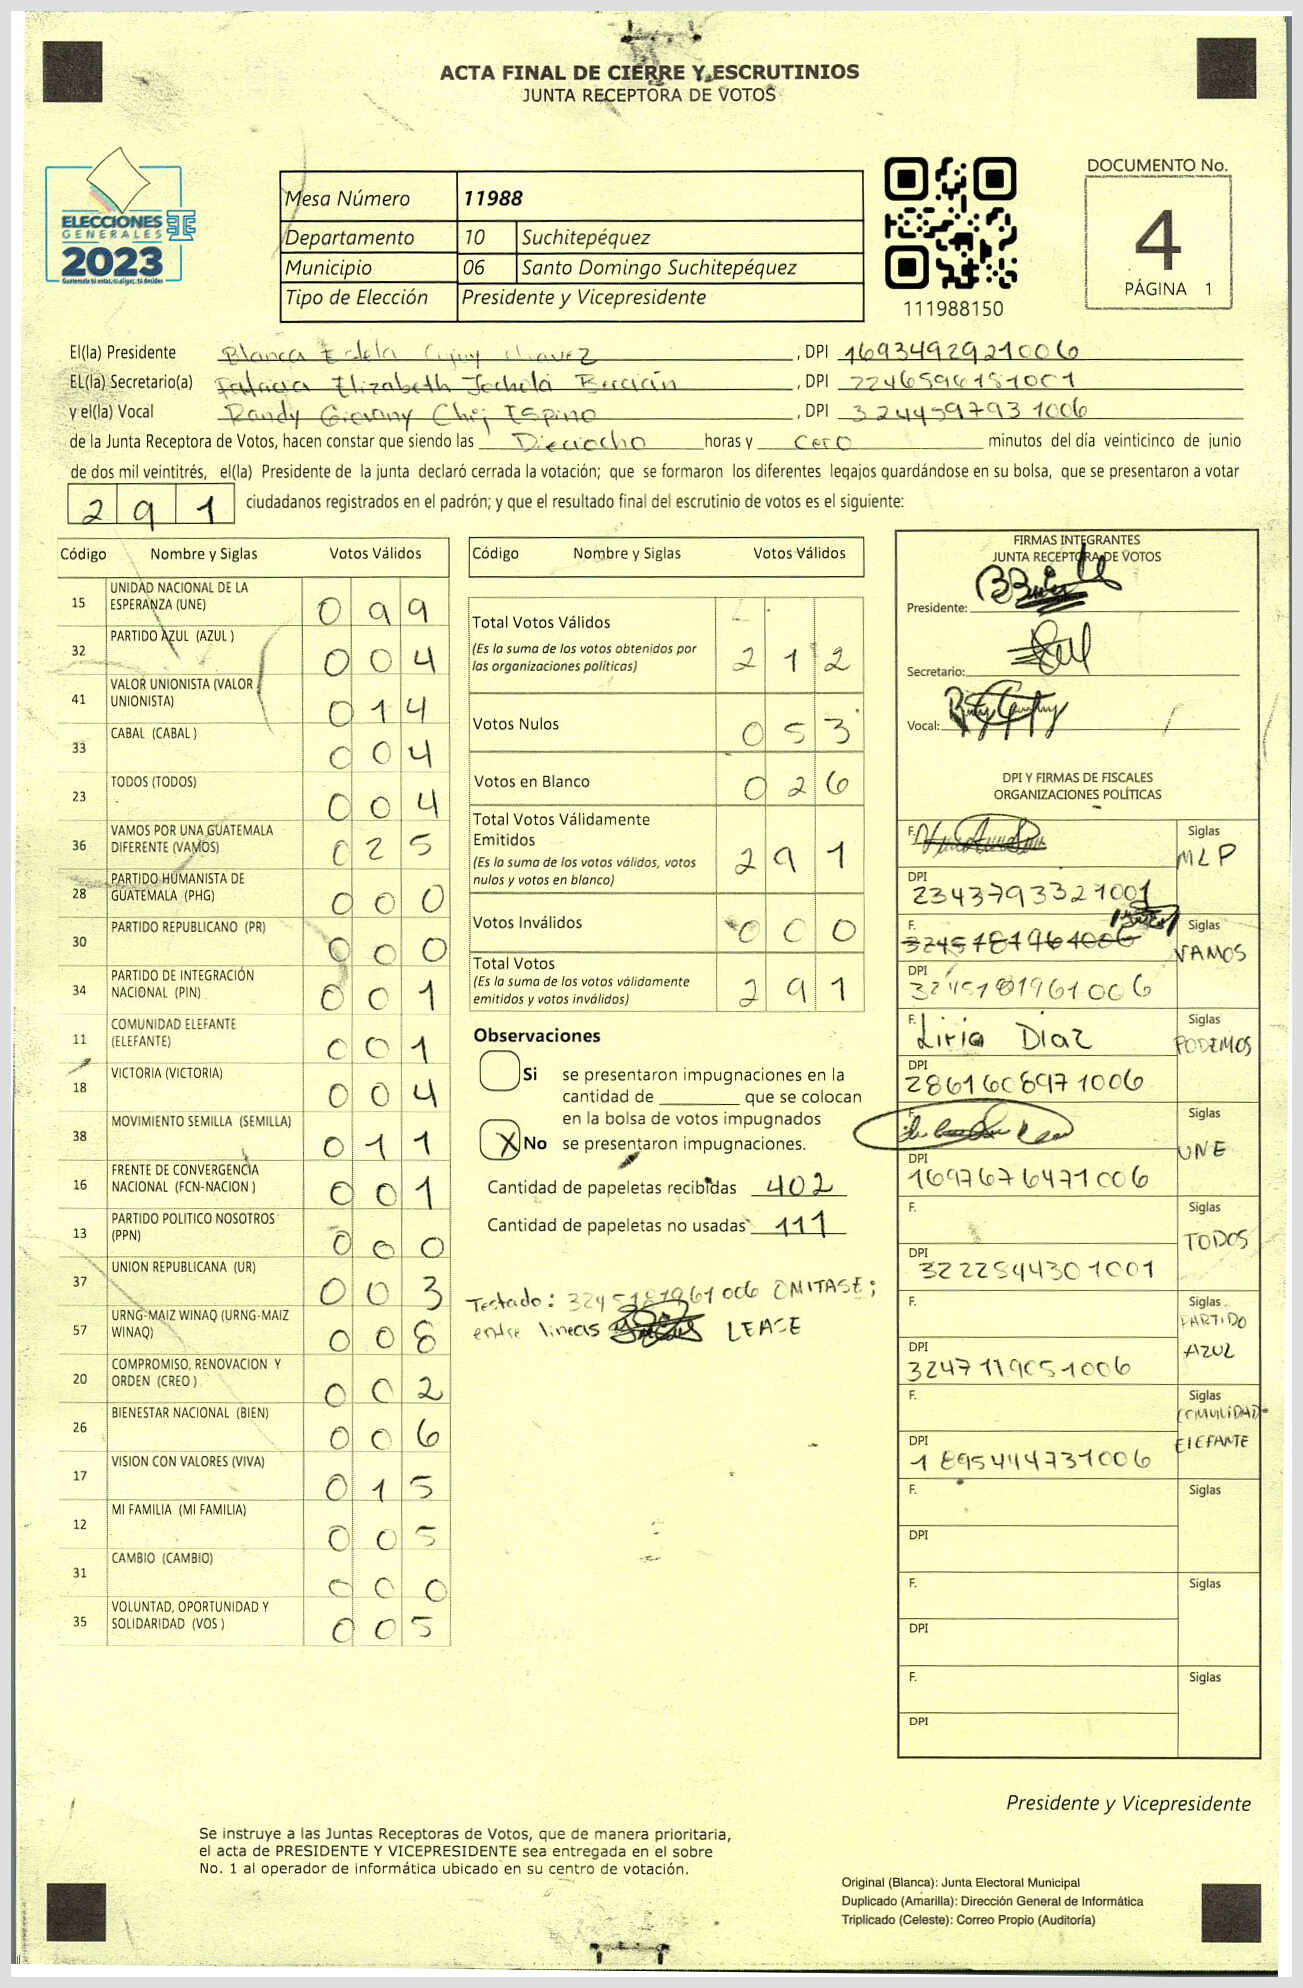 ACTA FINAL DE CIERRE Y ESCRUTINIOS
JUNTA RECEPTORA DE VOTOS
ELECCIONES
GENERALES
2023
Mesa Número 11988
Departamento 10 Suchitepéquez
Municipio 06 Santo Domingo Suchitepéquez
Tipo de Elección Presidente y Vicepresidente
111988150
DOCUMENTO No.
4
PÁGINA 1
El(la) Presidente Blanca Estela Chavez, DPI 1693492921006
EL(la) Secretario(a) Patricia Elizabeth, DPI
y el(la) Vocal Randy Giovany Espino, DPI 3244597931006
de la Junta Receptora de Votos, hacen constar que siendo las Dieciocho horas y cero minutos del día veinticinco de junio
de dos mil veintitrés, el(la) Presidente de la junta declaró cerrada la votación; que se formaron los diferentes legajos guardándose en su bolsa, que se presentaron a votar
291 ciudadanos registrados en el padrón; y que el resultado final del escrutinio de votos es el siguiente:
Código Nombre y Siglas Votos Válidos
15 UNIDAD NACIONAL DE LA ESPERANZA (UNE) 099
32 PARTIDO AZUL (AZUL ) 004
41 VALOR UNIONISTA (VALOR UNIONISTA) 014
33 CABAL (CABAL ) 004
23 TODOS (TODOS) 004
36 VAMOS POR UNA GUATEMALA DIFERENTE (VAMOS) 025
28 PARTIDO HUMANISTA DE GUATEMALA (PHG) 000
30 PARTIDO REPUBLICANO (PR) 000
34 PARTIDO DE INTEGRACIÓN NACIONAL (PIN) 001
11 COMUNIDAD ELEFANTE (ELEFANTE) 001
18 VICTORIA (VICTORIA) 004
38 MOVIMIENTO SEMILLA (SEMILLA) 011
16 FRENTE DE CONVERGENCIA NACIONAL (FCN-NACION ) 001
13 PARTIDO POLITICO NOSOTROS (PPN) 000
37 UNION REPUBLICANA (UR) 003
57 URNG-MAIZ WINAQ (URNG-MAIZ WINAQ) 008
20 COMPROMISO, RENOVACION Y ORDEN (CREO ) 002
26 BIENESTAR NACIONAL (BIEN) 006
17 VISION CON VALORES (VIVA) 015
12 MI FAMILIA (MI FAMILIA) 005
31 CAMBIO (CAMBIO) 000
35 VOLUNTAD, OPORTUNIDAD Y SOLIDARIDAD (VOS ) 005
Código Nombre y Siglas Votos Válidos
Total Votos Válidos 212
(Es la suma de los votos obtenidos por
las organizaciones políticas)
Votos Nulos 053
Votos en Blanco 026
Total Votos Válidamente
Emitidos 291
(Es la suma de los votos válidos, votos
nulos y votos en blanco)
Votos Inválidos 000
Total Votos 291
(Es la suma de los votos válidamente
emitidos y votos inválidos)
Observaciones
Si se presentaron impugnaciones en la
cantidad de ________ que se colocan
en la bolsa de votos impugnados
X No se presentaron impugnaciones.
Cantidad de papeletas recibidas 402
Cantidad de papeletas no usadas 111
Testado: 3245181961006 OMITASE;
entre lineas LEASE
FIRMAS INTEGRANTES
JUNTA RECEPTORA DE VOTOS
Presidente:
Secretario:
Vocal:
DPI Y FIRMAS DE FISCALES
ORGANIZACIONES POLÍTICAS
F. Siglas MLP
DPI 2343793321001
F. 3245181961006 Siglas VAMOS
DPI 3245181961006
F. Liria Diaz Siglas PODEMOS
DPI 2861608971006
F. Siglas UNE
DPI 1697676471006
F. Siglas TODOS
DPI 3222544301001
F. Siglas PARTIDO AZUL
DPI 3247119051006
F. Siglas COMUNIDAD ELEFANTE
DPI 1895444731006
F. Siglas
DPI
F. Siglas
DPI
F. Siglas
DPI
Presidente y Vicepresidente
Se instruye a las Juntas Receptoras de Votos, que de manera prioritaria,
el acta de PRESIDENTE Y VICEPRESIDENTE sea entregada en el sobre
No. 1 al operador de informática ubicado en su centro de votación.
Original (Blanca): Junta Electoral Municipal
Duplicado (Amarilla): Dirección General de Informática
Triplicado (Celeste): Correo Propio (Auditoría)